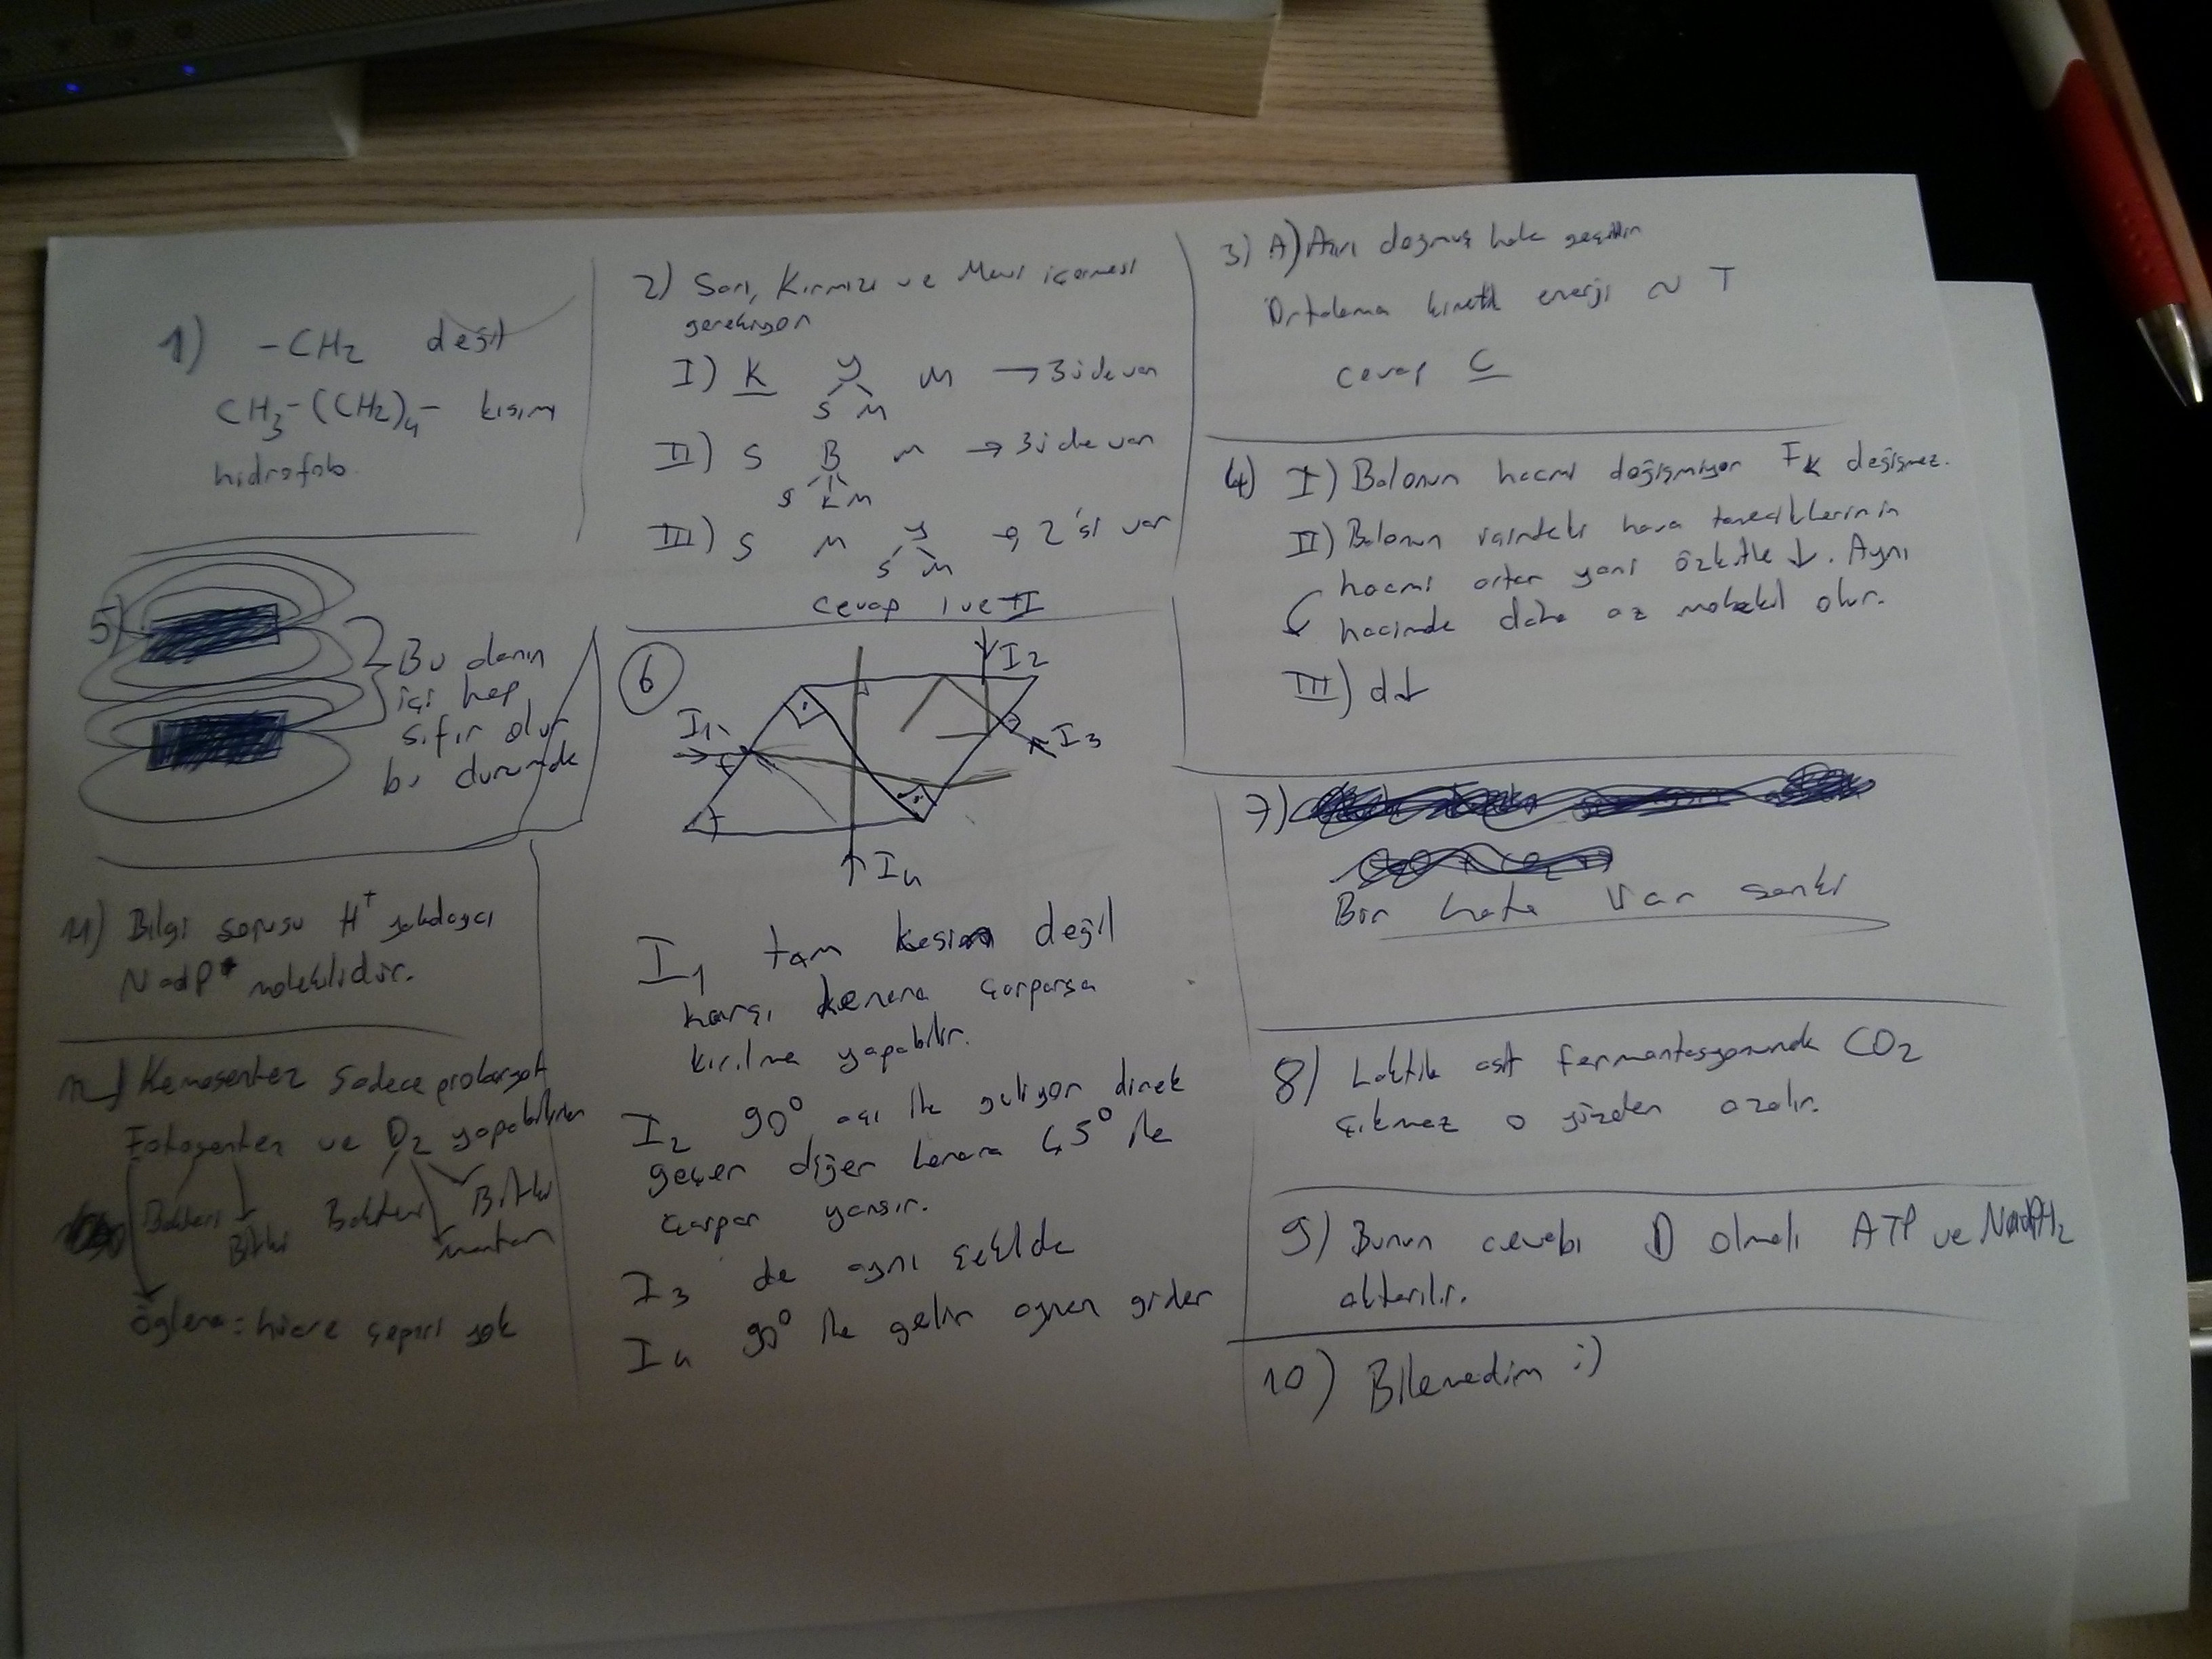 1) -CH2 değil
CH3-(CH2)4- kısım
hidrofob.
2) Sarı, Kırmızı ve Mavi içermesi
gerekiyor
I) K Y M → 3ü de var
S M
II) S B M → 3ü de var
S K M
III) S M Y → 2'si var
S M
Cevap I ve II
3) A) Aşırı doymuş hale geçettin
Ortalama kinetik enerji ~ T
Cevap C
4) I) Balonun hacmi değişmiyor Fk değişmez.
II) Balonun içindeki hava taneciklerinin
hacmi artar yani özkütle ↓. Aynı
hacimde daha az molekül olur.
III) d↓
5) Bu alanın
içi hep
sıfır olur
bu durumda
6
I1
I2
I3
I4
I1 tam kesin değil
karşı kenara çarparsa
kırılma yapabilir.
I2 90° açı ile geliyor direk
geçer diğer kenara 45° ile
çarpar yansır.
I3 de aynı şekilde
I4 90° ile gelir aynen gider
7)
Bir hata var sanki
8) Laktik asit fermantasyonunda CO2
çıkmaz o yüzden azalır.
9) Bunun cevabı D olmalı ATP ve NadPH2
aktarılır.
10) Bilemedim :)
11) Bilgi sorusu H+ yakalayıcı
NadP+ molekülüdür.
12) Kemosentez sadece prokaryot
Fotosentez ve O2 yapabilirler
Bakteri Bitki Bakteri mantar Bitki
Öglena = hücre çeperi yok